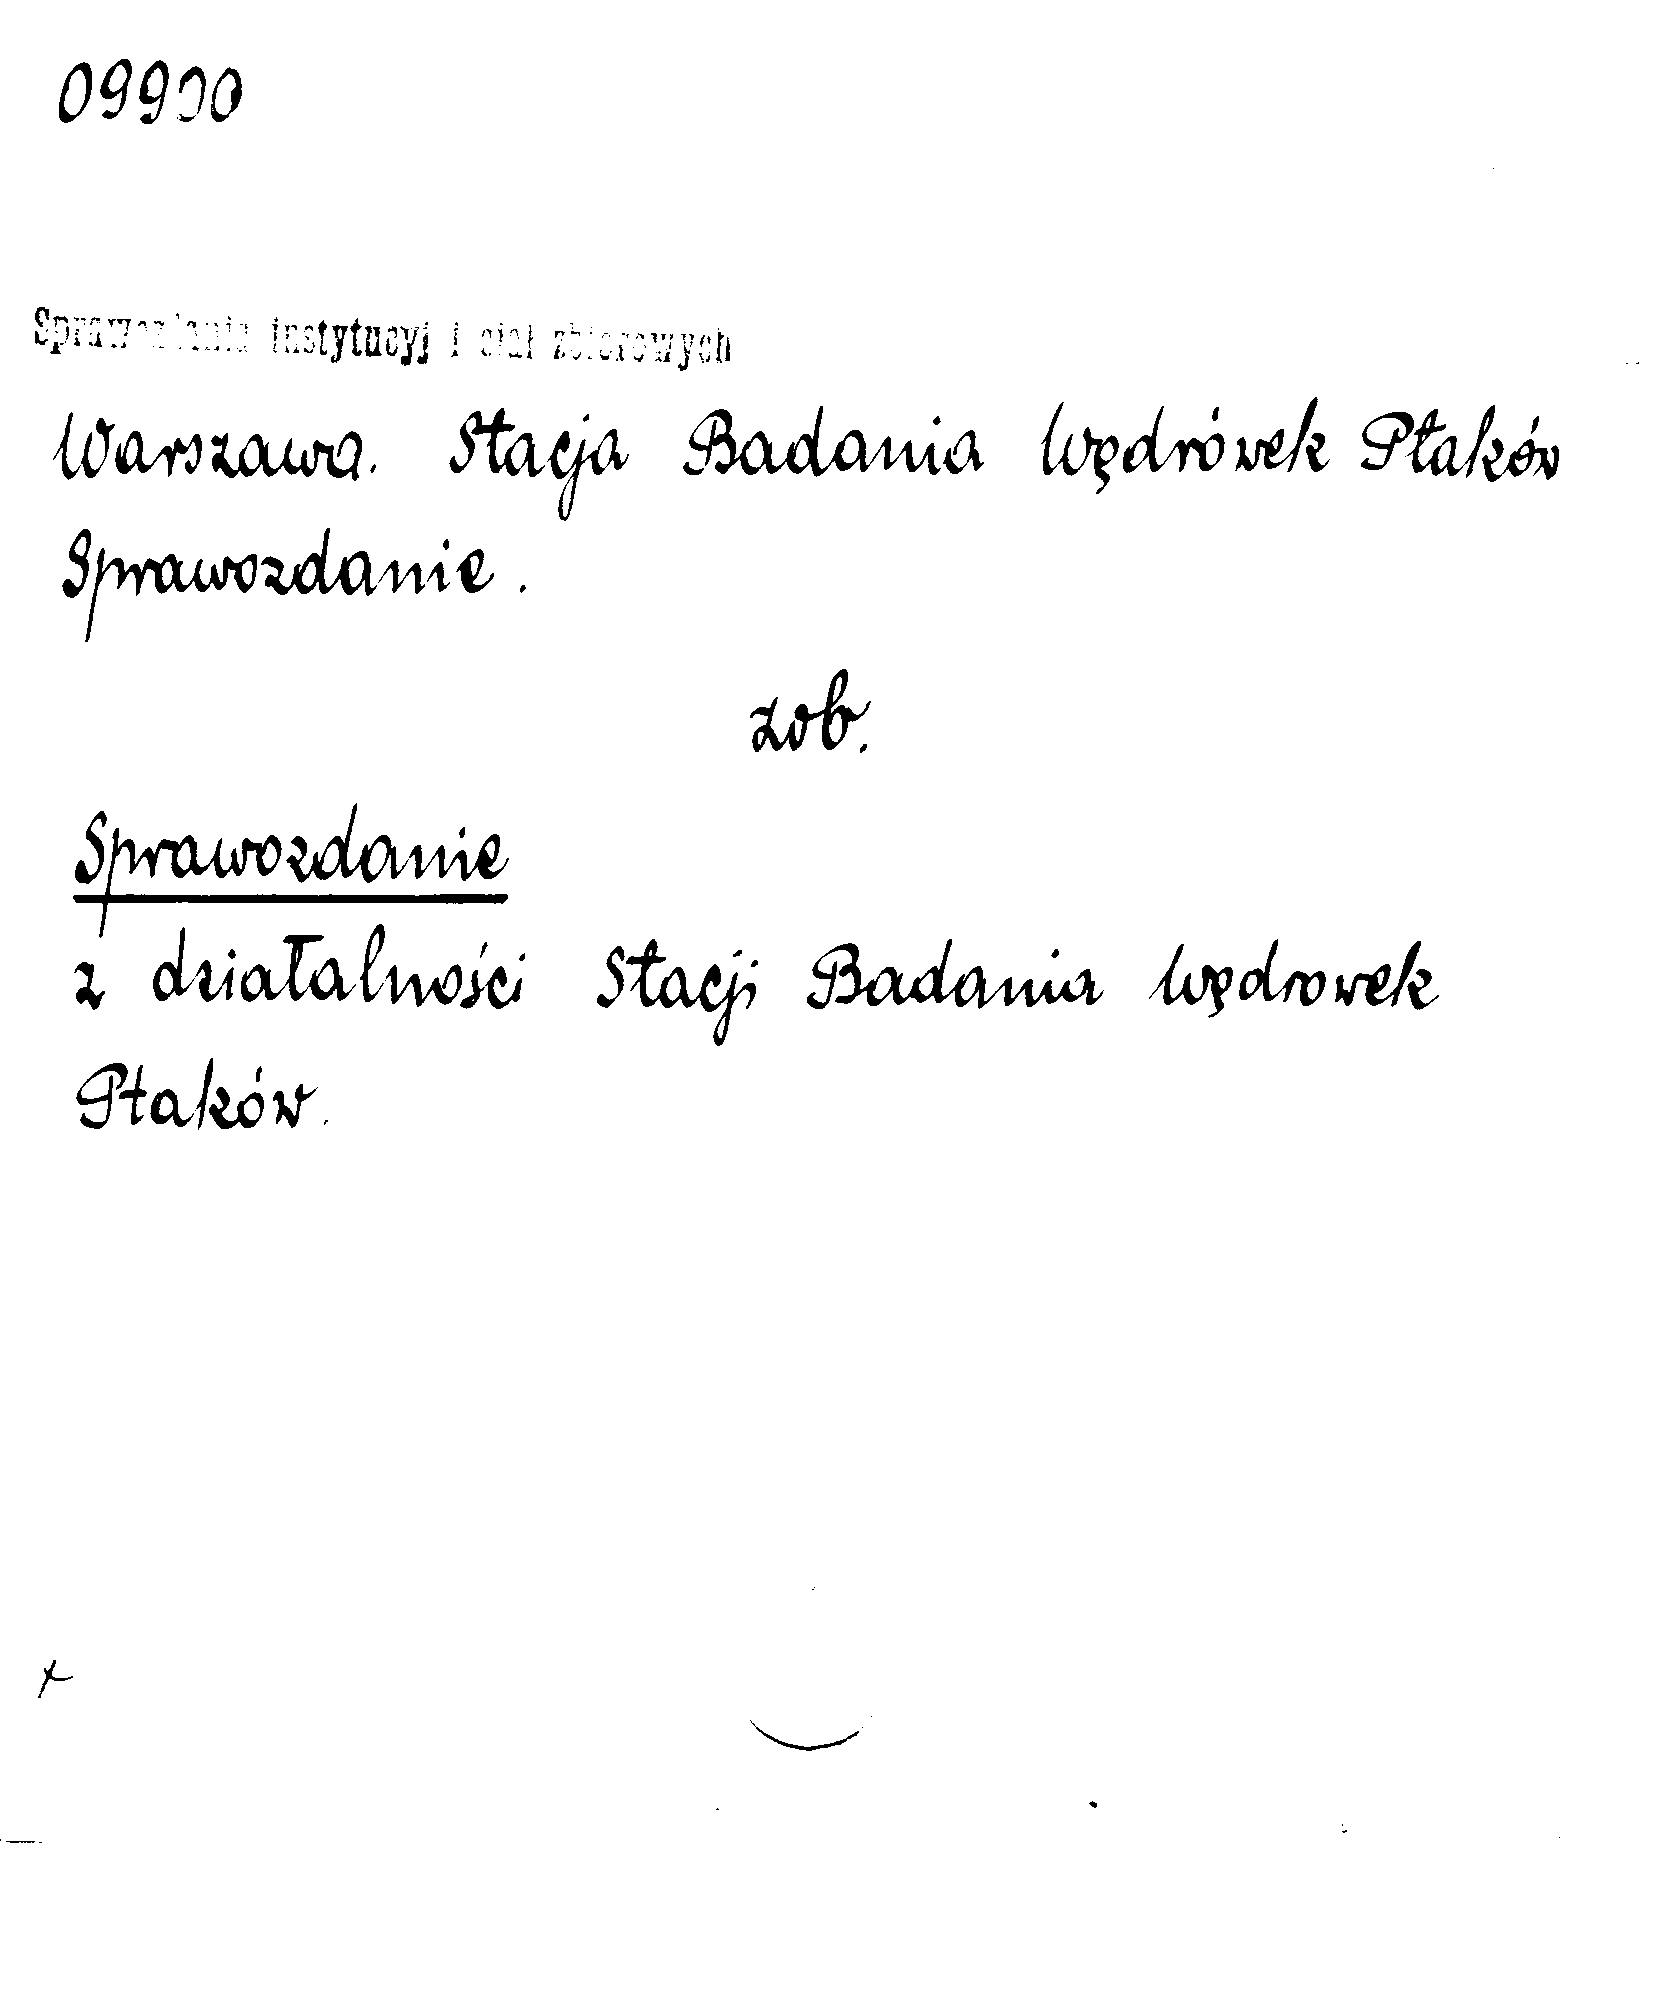 09900
Sprawozdania instytucyj i ciał zbiorowych
Warszawa. Stacja Badania Wędrówek Ptaków
Sprawozdanie.
zob.
Sprawozdanie
z działalności Stacji Badania Wędrowek
Ptaków.